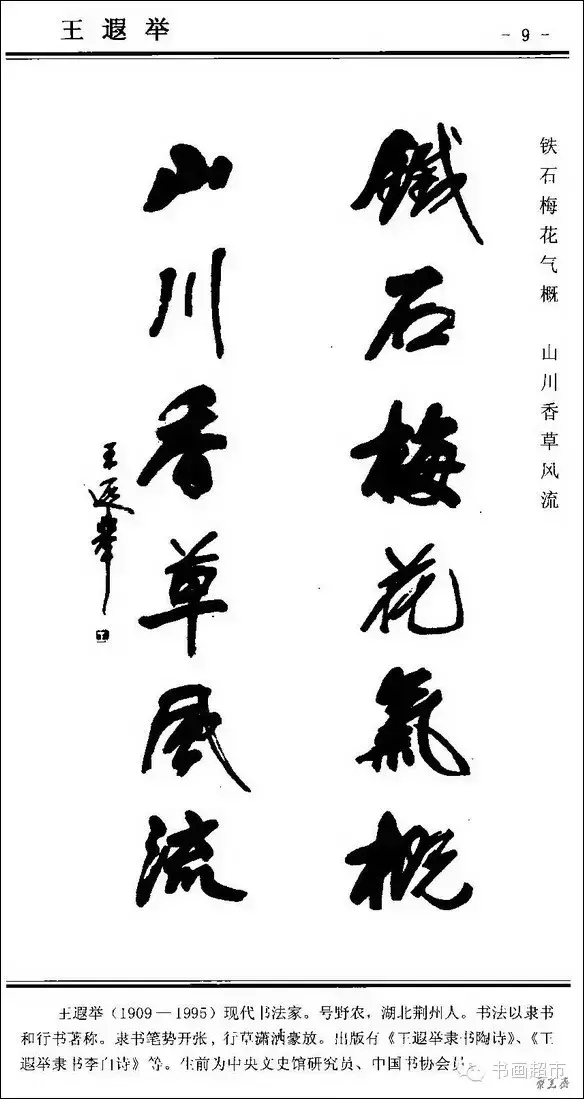 王遐举
- 9 -
铁石梅花气概 山川香草风流
鐵石梅花氣概
山川香草風流
王遐举
王遐举(1909—1995)现代书法家。号野农,湖北荆州人。书法以隶书
和行书著称。隶书笔势开张,行草潇洒豪放。出版有《王遐举隶书陶诗》、《王
遐举隶书李白诗》等。生前为中央文史馆研究员、中国书协会员。
书画超市